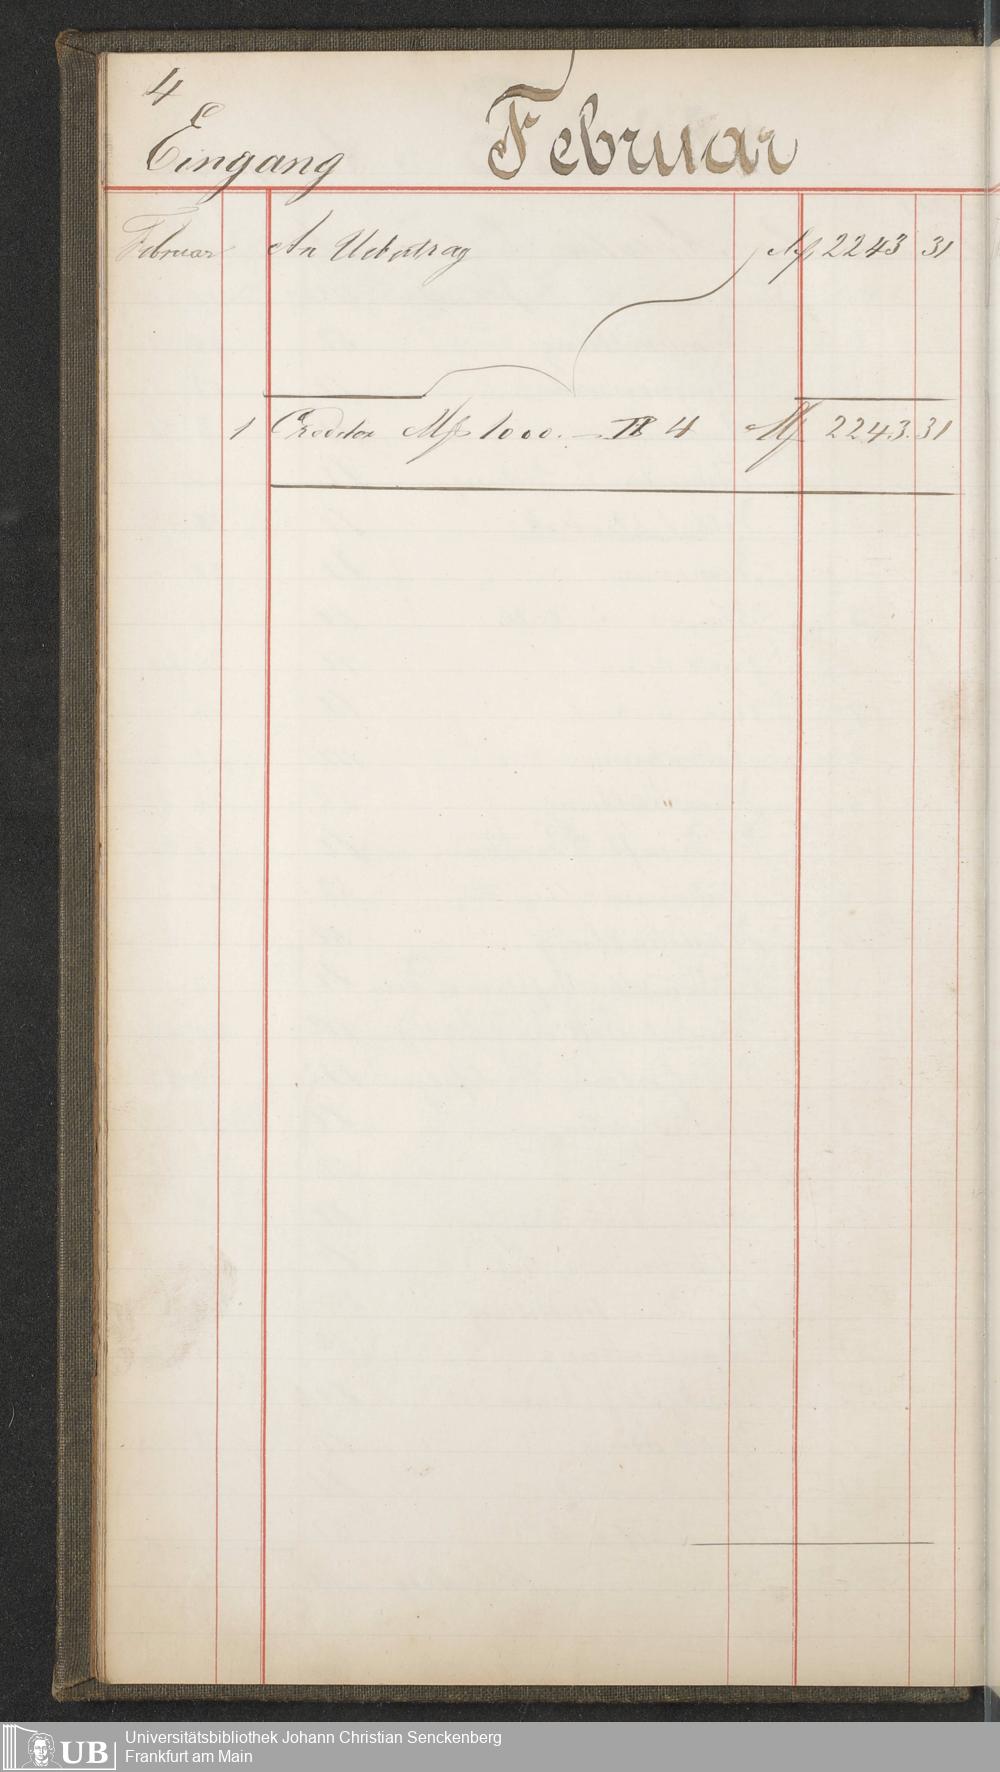 4
Eingang Februar
Februar An Uebertrag M 2243 31
1 Creditor M 1000. — 4 M 2243.31
Universitätsbibliothek Johann Christian Senckenberg
Frankfurt am Main
UB